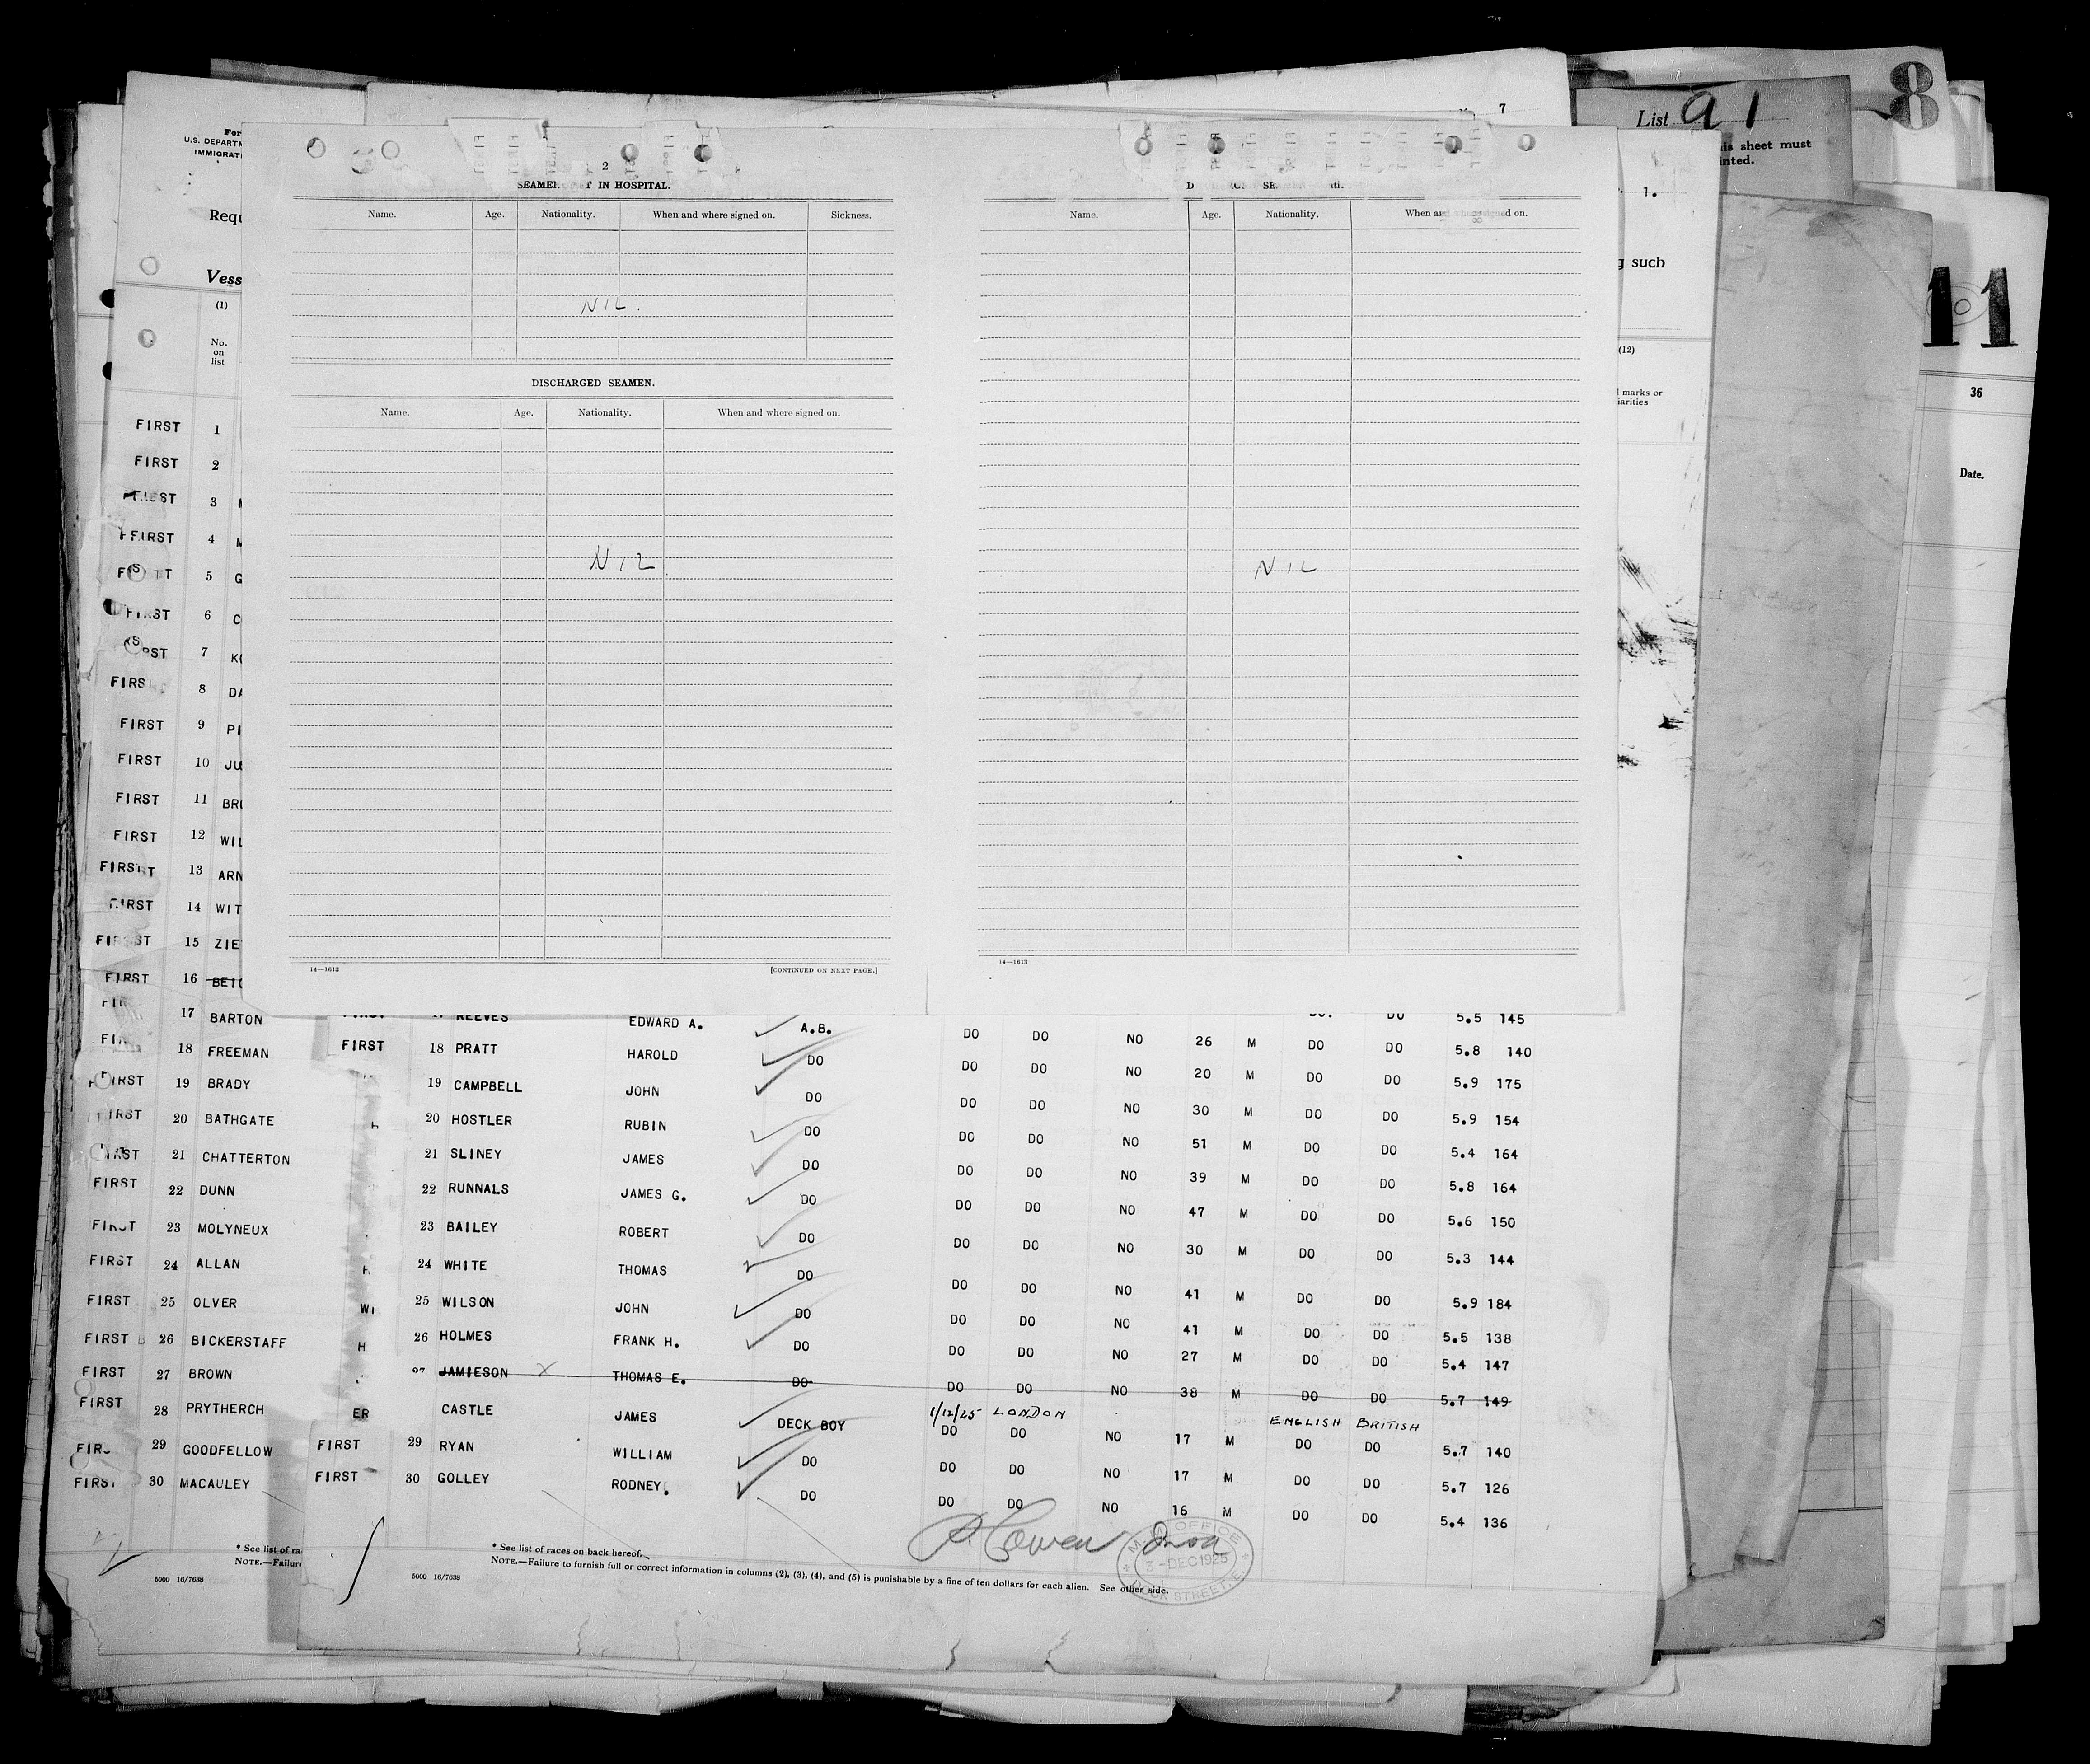 7
8
List 91
is sheet must
inted.
1.
g such
11
(12)
l marks or
iarities
36
Date.
For
U.S. DEPARTM
IMMIGRATI
Requ
Vess
(1)
No.
on
list
2
IN HOSPITAL.
Name. Age. Nationality. When and where signed on. Sickness.
NIL.
DISCHARGED SEAMEN.
Name. Age. Nationality. When and where signed on.
NIL
14—1613 [CONTINUED ON NEXT PAGE.]
Name. Age. Nationality. When and where signed on.
NIL
14—1613
FIRST 1
FIRST 2
FIRST 3
FIRST 4 M
5 G
FIRST 6 C
7
8 DA
FIRST 9 PI
FIRST 10 JU
FIRST 11 BR
FIRST 12 WIL
FIRST 13 ARN
FIRST 14 WIT
15 ZIE
FIRST 16 BEIC
17 BARTON
18 FREEMAN
FIRST 19 BRADY
20 BATHGATE
21 CHATTERTON
FIRST 22 DUNN
FIRST 23 MOLYNEUX
FIRST 24 ALLAN
FIRST 25 OLVER WI
FIRST 26 BICKERSTAFF H
FIRST 27 BROWN
FIRST 28 PRYTHERCH ER
29 GOODFELLOW
FIRST 30 MACAULEY
* See list of ra
NOTE.—Failure
5000 16/7638
REEVES EDWARD A. A.B. DO DO NO 26 M DO. DO 5.5 145
FIRST 18 PRATT HAROLD DO DO DO NO 20 M DO DO 5.8 140
19 CAMPBELL JOHN DO DO DO NO 30 M DO DO 5.9 175
20 HOSTLER RUBIN DO DO DO NO 51 M DO DO 5.9 154
21 SLINEY JAMES DO DO DO NO 39 M DO DO 5.4 164
22 RUNNALS JAMES G. DO DO DO NO 47 M DO DO 5.8 164
23 BAILEY ROBERT DO DO DO NO 30 M DO DO 5.6 150
24 WHITE THOMAS DO DO DO NO 41 M DO DO 5.3 144
25 WILSON JOHN DO DO DO NO 41 M DO DO 5.9 184
26 HOLMES FRANK H. DO DO DO NO 27 M DO DO 5.5 138
5.4 147
27 JAMIESON X THOMAS E. DO DO DO NO 38 M DO DO 5.7 149
CASTLE JAMES DECK BOY 1/12/25 LONDON ENGLISH BRITISH
DO DO NO 17 M DO DO 5.7 140
FIRST 29 RYAN WILLIAM DO DO DO NO 17 M DO DO 5.7 126
FIRST 30 GOLLEY RODNEY. DO DO DO NO 16 M DO DO 5.4 136
M.M. OFFICE
3-DEC 1925
DOCK STREET. E.
* See list of races on back hereof.
NOTE.—Failure to furnish full or correct information in columns (2), (3), (4), and (5) is punishable by a fine of ten dollars for each alien. See other side.
5000 16/7638